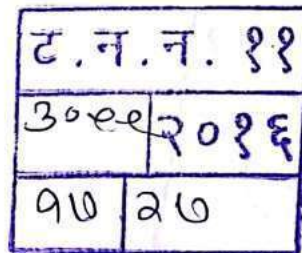 ट.न.न. ११
३०९९ २०१६
१७ २७